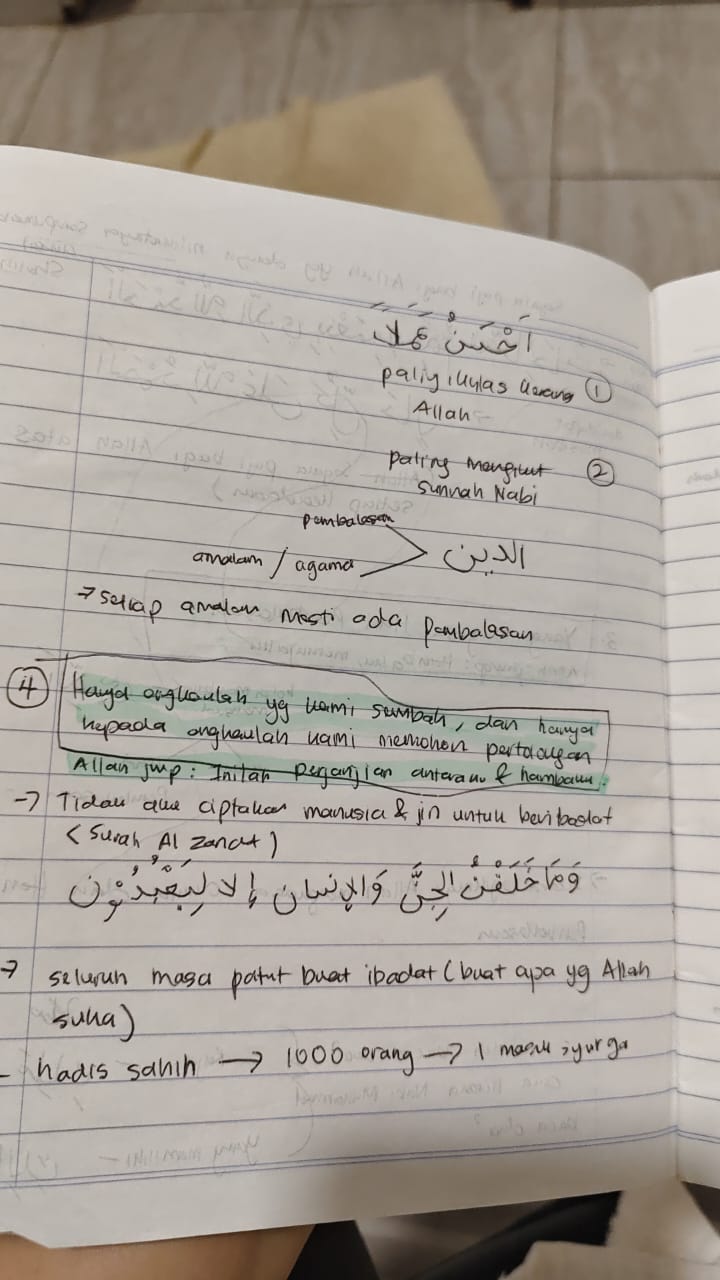 اَحْسَنُ عَمَلًا
paling ikhlas kerana ①
Allah
paling mengikut ②
sunnah Nabi
pembalasan
amalam / agama
الدين
→ setiap amalan mesti ada pembalasan
④ Hanya engkaulah yg kami sembah, dan hanya
kepada engkaulah kami memohon pertolongan
Allah jwp: Inilah perjanjian antaraku & hambaku.
→ Tidak aku ciptakan manusia & jin untuk beribadat
(Surah Al Zariat)
وَمَا خَلَقْتُ الجِنَّ وَالإِنسان إلا لِيَعْبُدُوْنِ
→ seluruh masa patut buat ibadat (buat apa yg Allah
suka)
- hadis sahih → 1000 orang → 1 masuk syurga